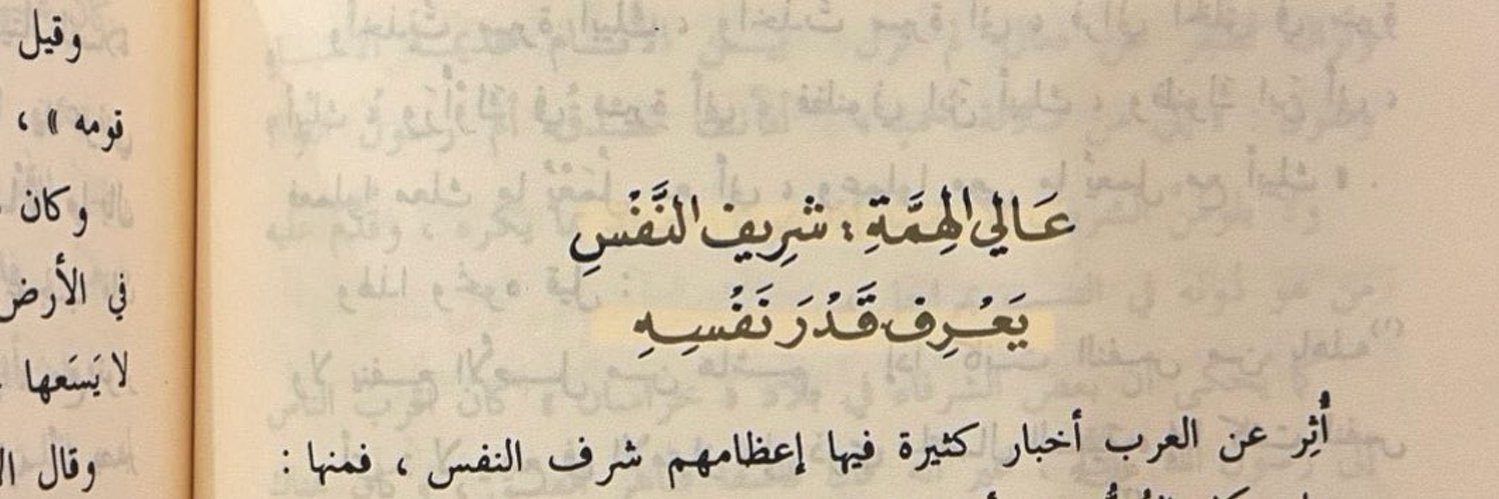 عَالي الهِمَّةِ : شَرِيف النَّفْسِ
يَعْرِف قَدْرَ نَفْسِهِ
أُثِر عن العرب أخبار كثيرة فيها إعظامهم شرف النفس ، فمنها :
وقيل
قومه » ،
وكان
في الأرض
لا يَسَعها
وقال